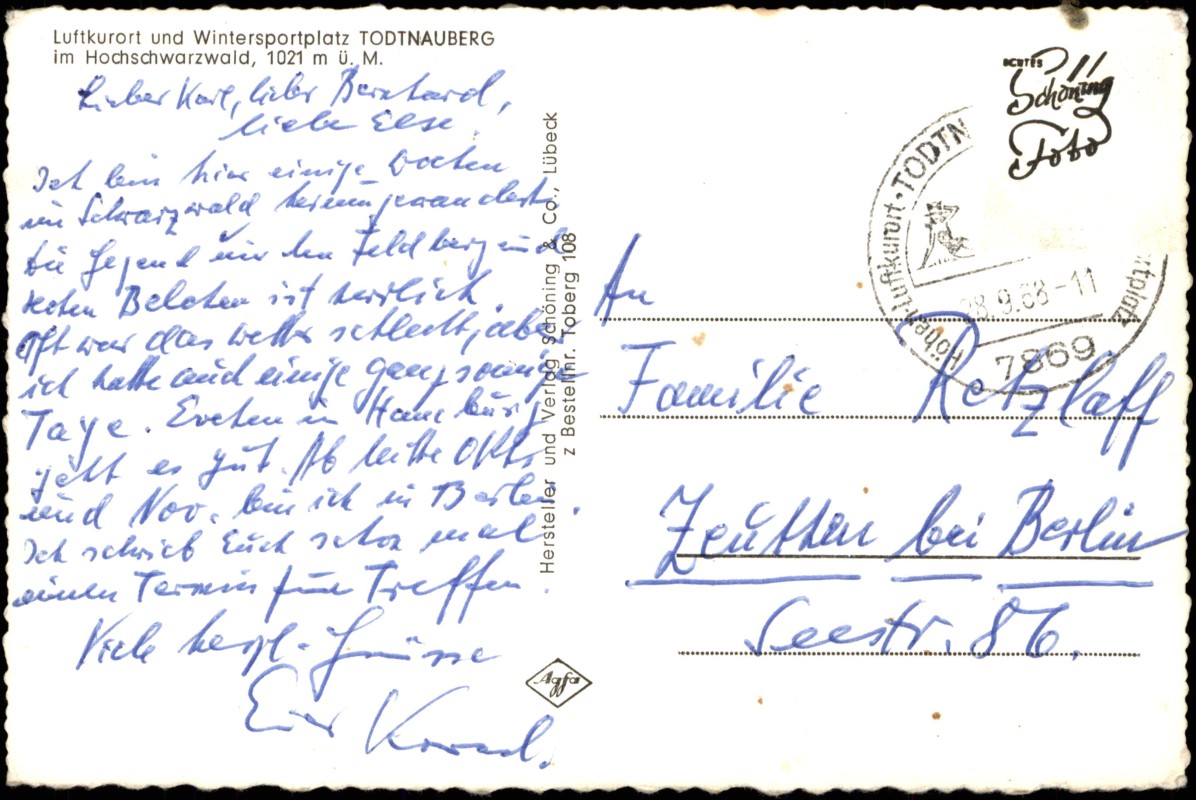 Luftkurort und Wintersportplatz TODTNAUBERG
im Hochschwarzwald, 1021 m ü. M.
Lieber Karl, lieber Bernhard,
liebe Else!
Ich bin hier einige Wochen
im Schwarzwald herumgewandert
Die Gegend um den Feldberg und
Belchen ist herrlich.
Oft war das Wetter schlecht, aber
ich hatte auch einige ganz sonnige
Tage. in Hamburg
geht es gut. Ab Mitte Okt.
und Nov. bin ich in Berlin.
Ich schrieb Euch schon mal
einen Termin zum Treffen.
Viele herzl. Grüsse
Euer Konrad.
Hersteller und Verlag Schöning & Co., Lübeck
z Bestellnr. Toberg 108
Agfa
ECHTES
Schöning
Foto
Höhen-Luftkurort · TODTN
rtplatz
8.9.68-11
7869
An
Familie Retzlaff
Zeuthen bei Berlin
Seestr. 86.